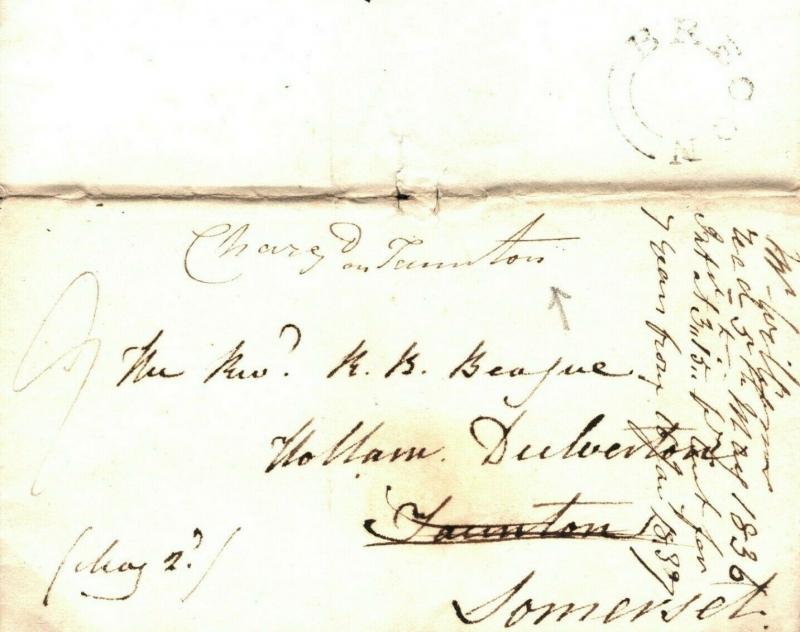 BRECON
Charg'd
on Taunton
The Revd. R. B. Beague
Hollam. Dulverton
Taunton
Somerset.
(May 2d)
May 1836
for
7 years from